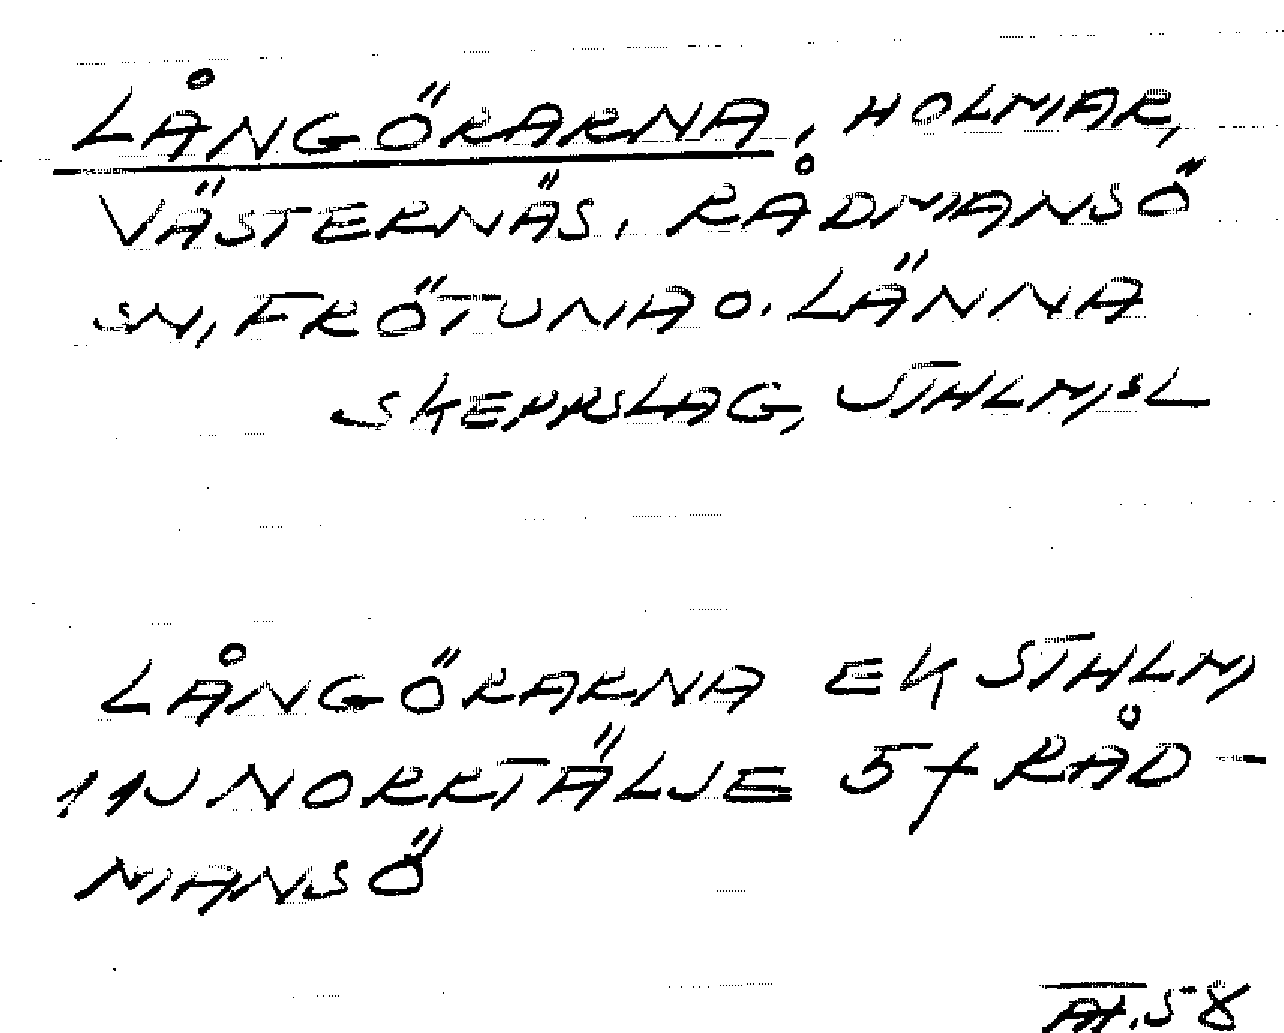 LÅNGÖRARNA, HOLMAR,
VÄSTERNÄS, RÅDMANSÖ
SN, FRÖTUNA O. LÄNNA
SKEPPSLAG, STHLM,S L
LÅNGÖRARNA EK STHLM,
11J NORRTÄLJE 5f RÅD-
MANSÖ
58